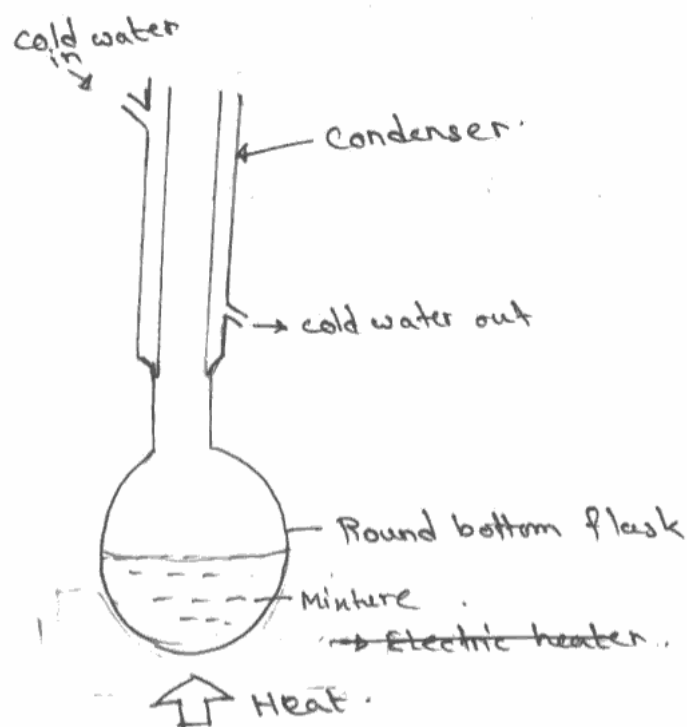 cold water
in
Condenser.
→ cold water out
Round bottom flask
Minture
→ Electric heater.
Heat.